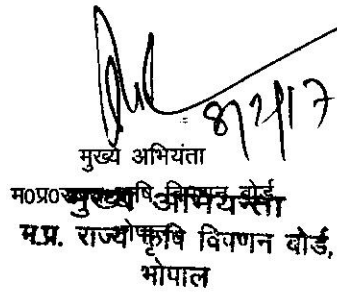 8/2/17
मुख्य अभियंता
म०प्र० कृषि विपणन बोर्ड
मुख्य अभियन्ता
म.प्र. राज्य कृषि विपणन बोर्ड,
भोपाल